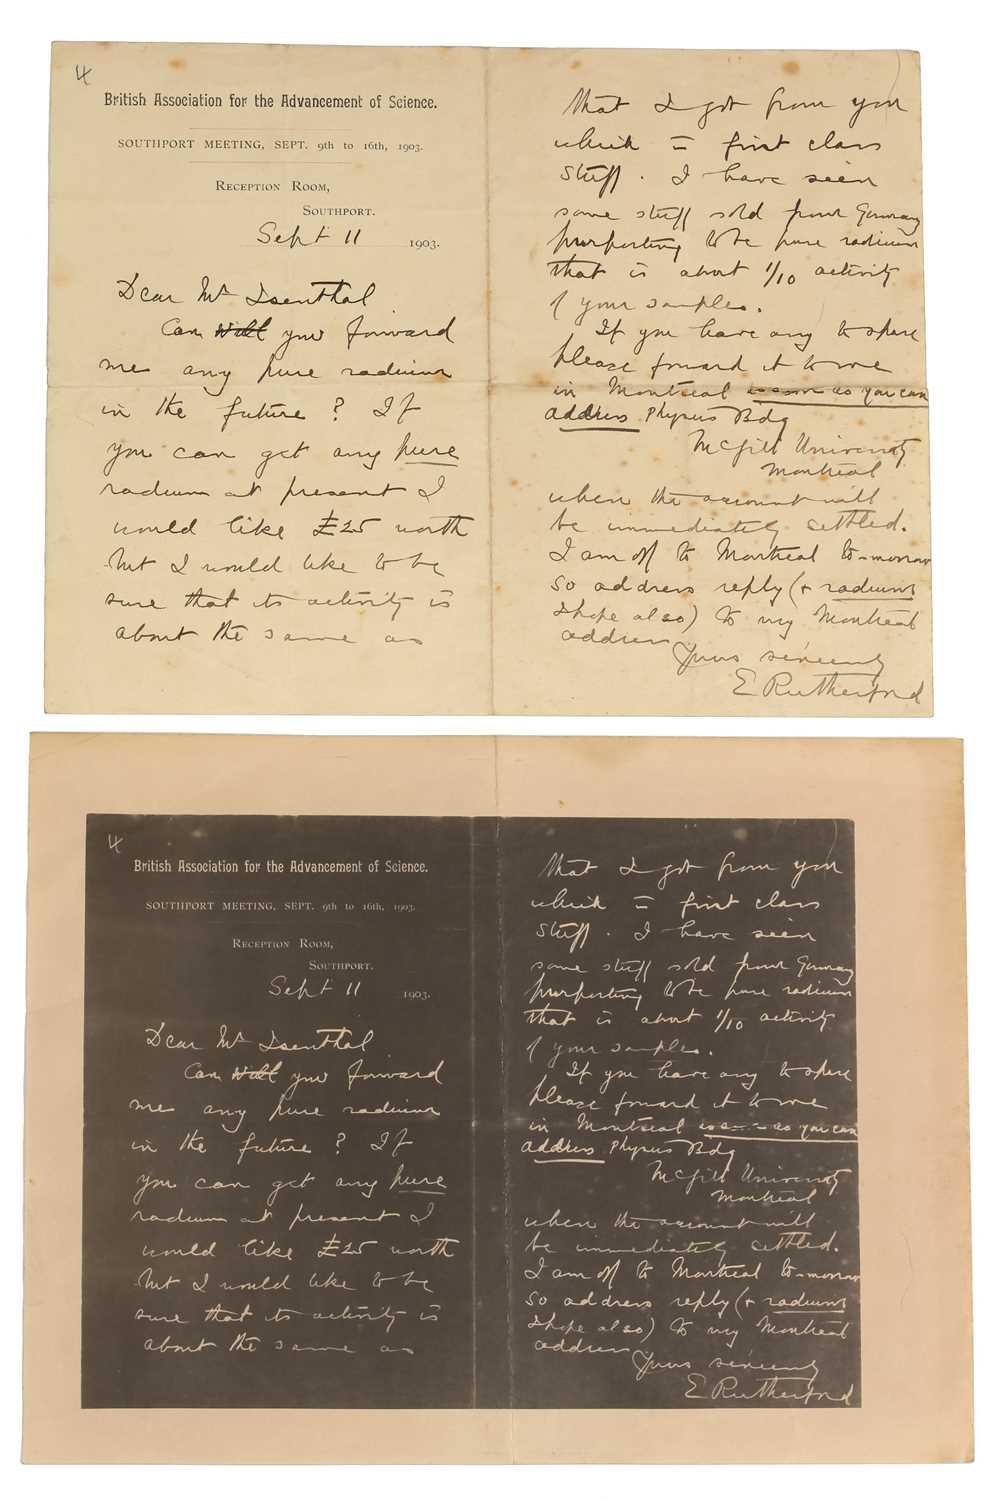 4
British Association for the Advancement of Science.
SOUTHPORT MEETING, SEPT. 9th to 16th, 1903.
RECEPTION ROOM,
SOUTHPORT.
Sept 11 1903.
Dear Mr Isenthal
Can will you forward
me any pure radium
in the future? If
you can get any pure
radium at present I
would like £25 worth
but I would like to be
sure that its activity is
about the same as
that I got from you
which = first class
stuff. I have seen
some stuff sold from Germany
purporting to be pure radium
that is about 1/10 activity
of your samples.
If you have any to spare
please forward it to me
in Montreal as soon as you can
address Physics Bdg
McGill University
Montreal
when the account will
be immediately settled.
I am off to Montreal to-morrow
so address reply (+ radium
I hope also) to my Montreal
address
Yours sincerely
E Rutherford
4
British Association for the Advancement of Science.
SOUTHPORT MEETING, SEPT. 9th to 16th, 1903.
RECEPTION ROOM,
SOUTHPORT.
Sept 11 1903.
Dear Mr Isenthal
Can will you forward
me any pure radium
in the future? If
you can get any pure
radium at present I
would like £25 worth
but I would like to be
sure that its activity is
about the same as
that I got from you
which = first class
stuff. I have seen
some stuff sold from Germany
purporting to be pure radium
that is about 1/10 activity
of your samples.
If you have any to spare
please forward it to me
in Montreal as soon as you can
address Physics Bdg
McGill University
Montreal
when the account will
be immediately settled.
I am off to Montreal to-morrow
so address reply (+ radium
I hope also) to my Montreal
address
Yours sincerely
E Rutherford